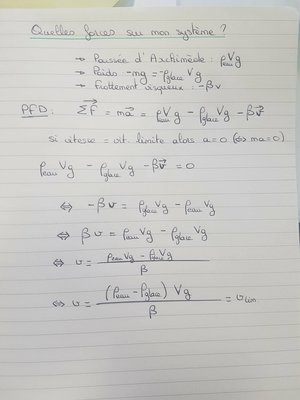 Quelles forces sur mon système ?
→ Poussée d'Archimède : ρeau Vg
→ Poids -mg = -ρglace Vg
→ Frottement visqueux : -βv
PFD : Σf⃗ = ma⃗ = ρeau Vg - ρglace Vg - βv⃗
si vitesse = vit. limite alors a = 0 (⇔ ma = 0)
ρeau Vg - ρglace Vg - βv⃗ = 0
⇔ -βv = ρglace Vg - ρeau Vg
⇔ βv = ρeau Vg - ρglace Vg
⇔ v = (ρeau Vg - ρglace Vg) / β
⇔ v = (ρeau - ρglace) Vg / β = vlim